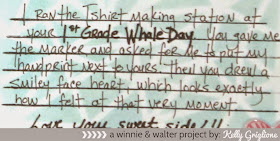 I ran the Tshirt making station at
your 1st Grade Whale Day. You gave me
the marker and asked for me to put my
handprint next to yours. Then you drew a
smiley face heart, which looks exactly
how I felt at that very moment.
Love your sweet side!!!
a winnie & walter project by: Kelly Griglione